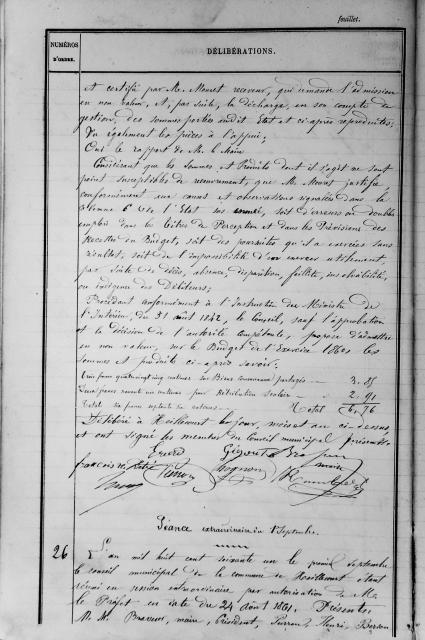 feuillet.
NUMÉROS
D'ORDRE.
DÉLIBÉRATIONS.
et certifié par Mr. Mouret receveur, qui demande l'admission
en non valeur, et, par suite, la décharge, en son compte de
gestion, des sommes portées audit Etat et ci-après reproduites;
Vu également les pièces à l'appui;
Ouï le rapport de Mr. le Maire
Considérant que les Sommes et Produits dont il s'agit ne sont
point susceptibles de recouvrement, que Mr. Mouret justifie,
conformément aux causes et observations signalées dans la
colonne 6 de l'Etat sus soit d'erreurs ou doubles
emplois dans les titres de Perception et dans les Prévisions des
Recettes du Budget, soit des poursuites qu'il a exercées sans
résultat, soit de l'impossibilité d'en exercer utilement,
par suite de décès, absence, disparition, faillite, insolvabilité,
ou indigence des Débiteurs;
Procédant conformément à l'Instruction du Ministre de
l'Intérieur, du 31 août 1842, le Conseil, sauf l'approbation
et la décision de l'autorité compétente, propose d'admettre
en non valeur, sur le Budget de l'Exercice 1860 les
sommes et produits ci-après savoir:
Trois francs quatre-vingt cinq centimes sur Biens communaux partagés 3. 85
Deux francs quatre-vingt onze centimes pour Rétribution Scolaire 2. 91
Total six francs soixante seize centimes Total 6. 76
Délibéré à les jour, mois et an ci-dessus,
et ont signé les membres du Conseil municipal présents.
maire
Séance extraordinaire du 1er Septembre.
26
L'an mil huit cent soixante un le premier Septembre
le conseil municipal de la commune de étant
réuni en session extraordinaire par autorisation de Mr.
le Préfet en date du 24 Août 1861. Présents,
M. M. maire, Président, Henri,